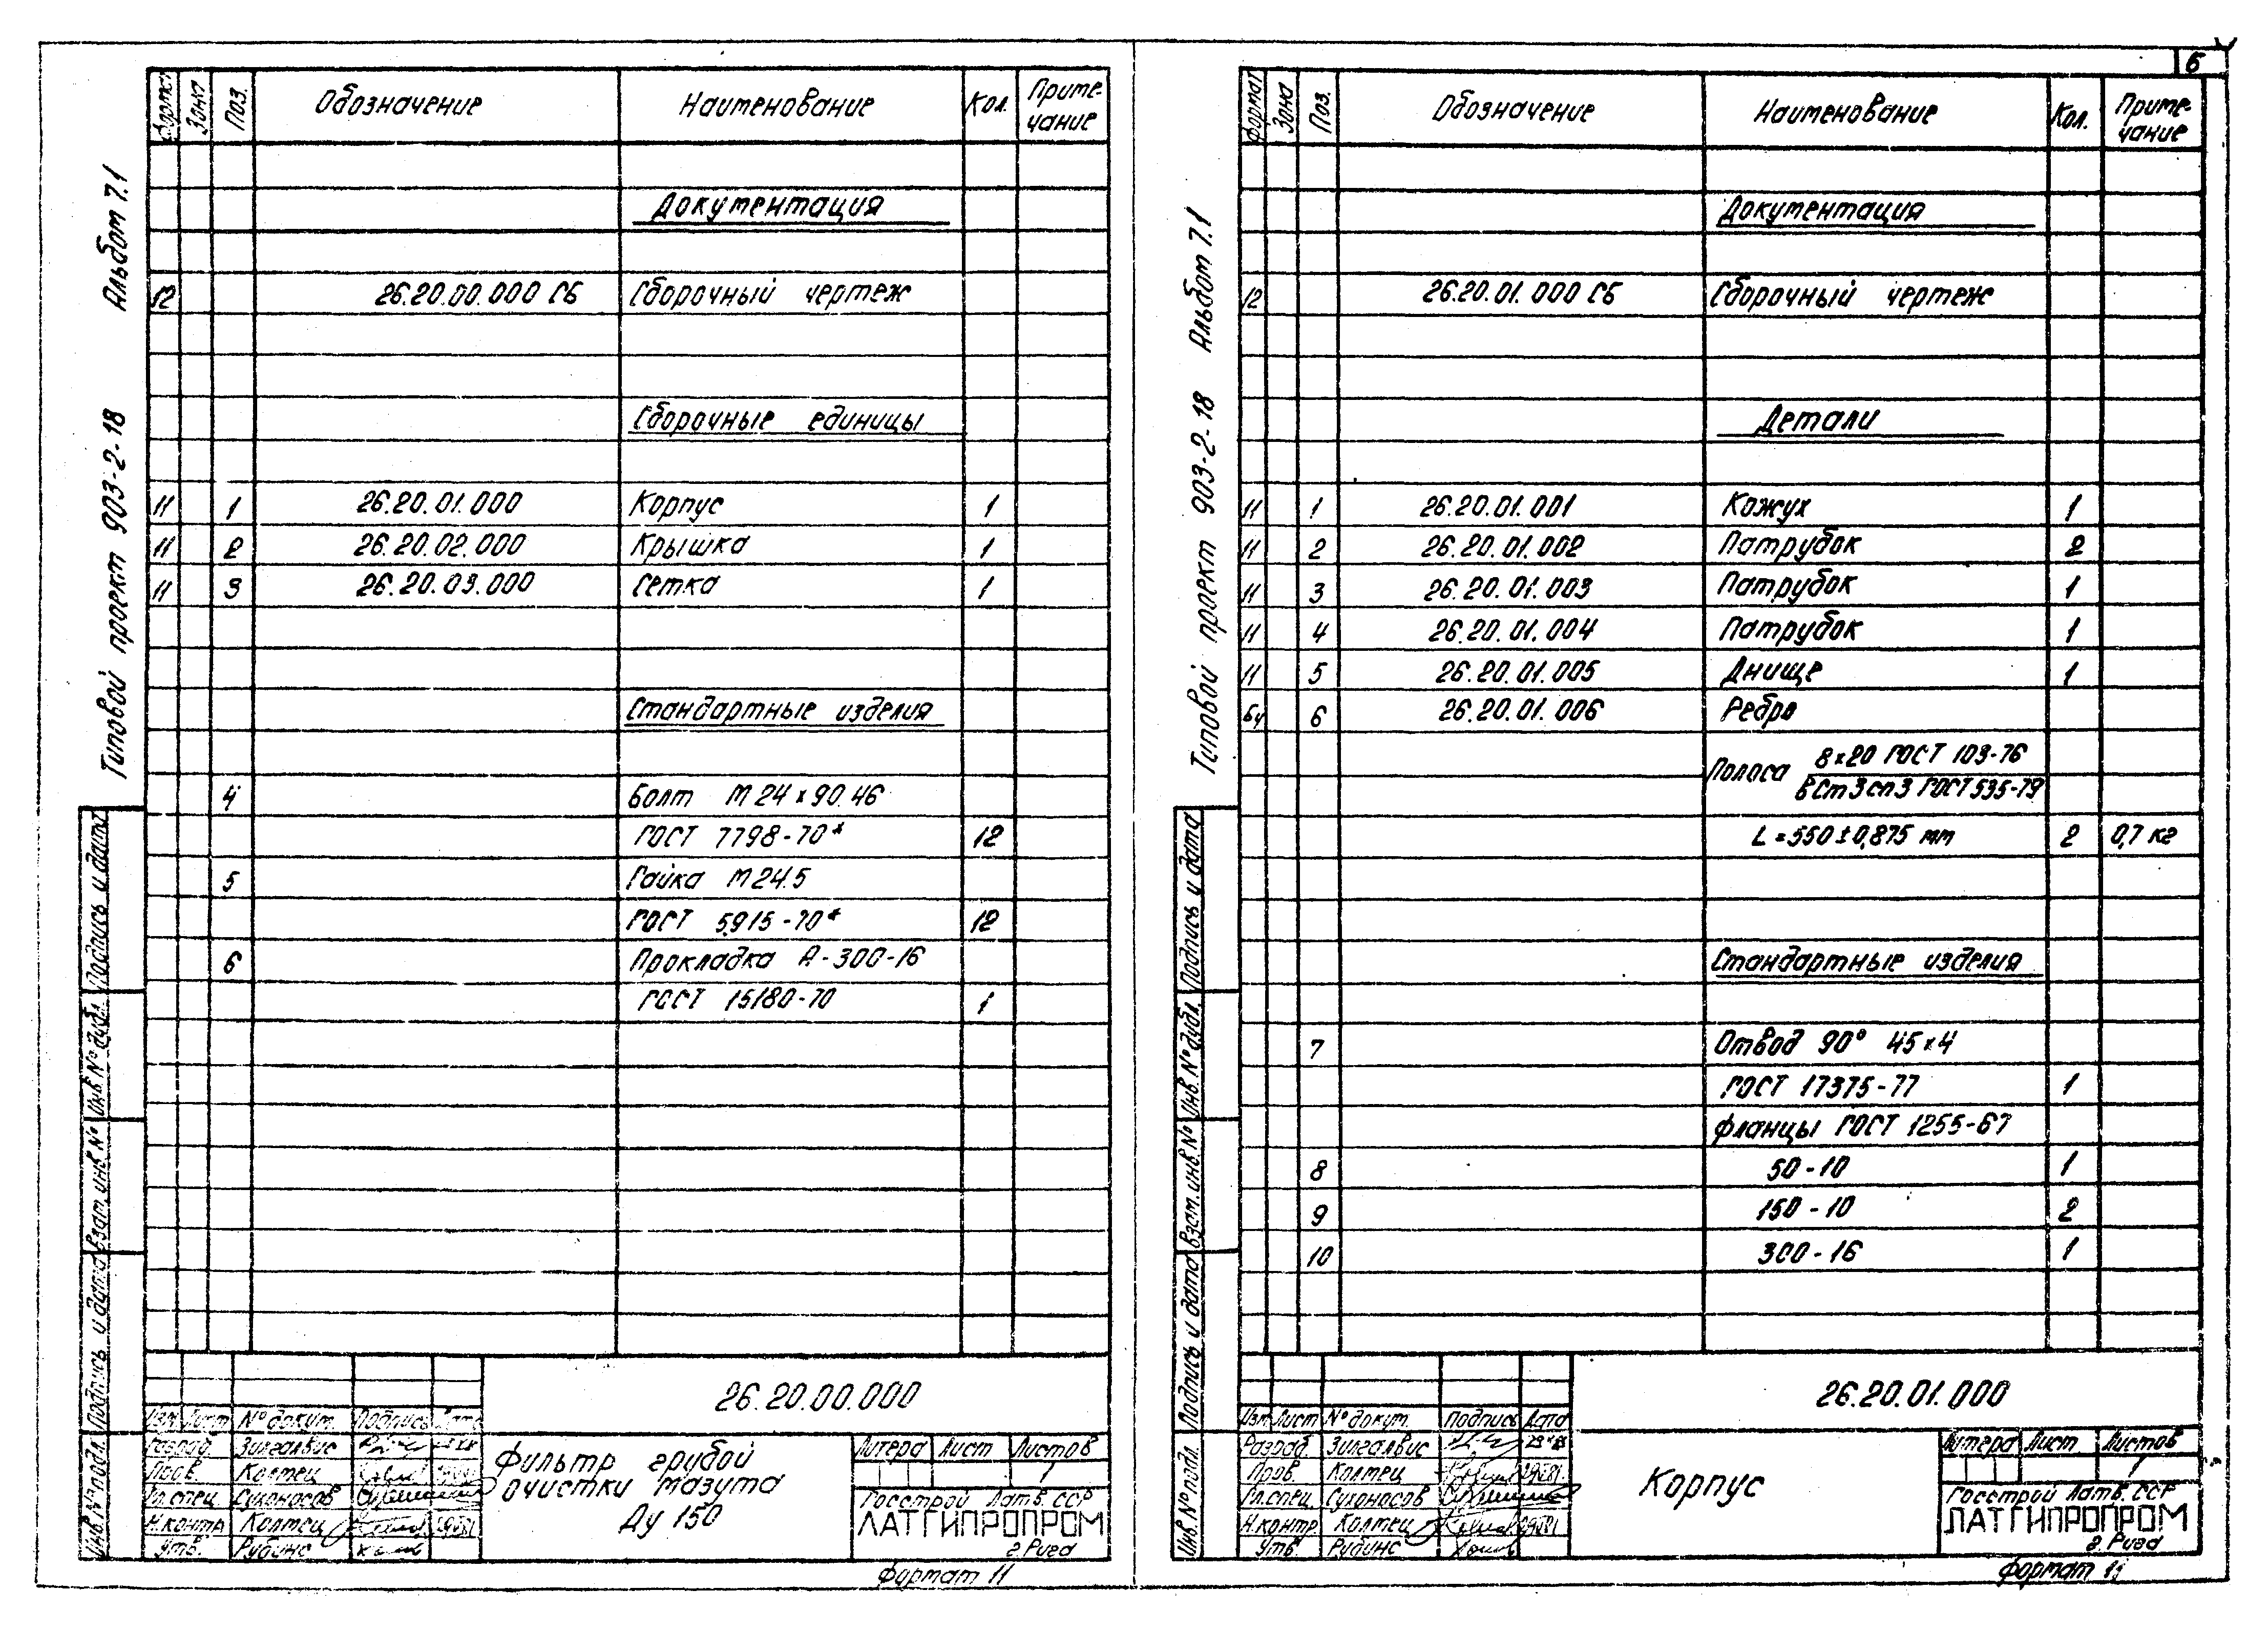 6
Формат Зона Поз. Обозначение Наименование Кол. Приме-
чание
Документация
12 26.20.00.000 СБ Сборочный чертеж
Сборочные единицы
11 1 26.20.01.000 Корпус 1
11 2 26.20.02.000 Крышка 1
11 3 26.20.03.000 Сетка 1
Стандартные изделия
4 Болт М 24 х 90.46
ГОСТ 7798-70* 12
5 Гайка М 24.5
ГОСТ 5915-70* 12
6 Прокладка А-300-16
ГОСТ 15180-70 1
26.20.00.000
Изм Лист № докум. Подпись Дата
Разраб. Зилгалвис
Пров. Колтец
Гл.спец Сухоносов
Н.контр Колтец
Утв. Рубинс
Фильтр грубой
очистки мазута
Ду 150
Литера Лист Листов
1
Госстрой Латв. ССР
ЛАТГИПРОПРОМ
г. Рига
Формат 11
Типовой проект 903-2-18 Альбом 7.1
Инв.№ подл. Подпись и дата Взам.инв.№ Инв.№ дубл. Подпись и дата
Формат Зона Поз. Обозначение Наименование Кол. Приме-
чание
Документация
12 26.20.01.000 СБ Сборочный чертеж
Детали
11 1 26.20.01.001 Кожух 1
11 2 26.20.01.002 Патрубок 2
11 3 26.20.01.003 Патрубок 1
11 4 26.20.01.004 Патрубок 1
11 5 26.20.01.005 Днище 1
Бч 6 26.20.01.006 Ребро
Полоса 8х20 ГОСТ 103-76
ВСт3сп3 ГОСТ 535-79
L=550±0,875 мм 2 0,7 кг
Стандартные изделия
7 Отвод 90° 45х4
ГОСТ 17375-77 1
Фланцы ГОСТ 1255-67
8 50-10 1
9 150-10 2
10 300-16 1
26.20.01.000
Изм Лист № докум. Подпись Дата
Разраб. Зилгалвис
Пров. Колтец
Гл.спец Сухоносов
Н.контр. Колтец
Утв. Рубинс
Корпус
Литера Лист Листов
1
Госстрой Латв. ССР
ЛАТГИПРОПРОМ
г. Рига
Формат 11
Типовой проект 903-2-18 Альбом 7.1
Инв.№ подл. Подпись и дата Взам.инв.№ Инв.№ дубл. Подпись и дата